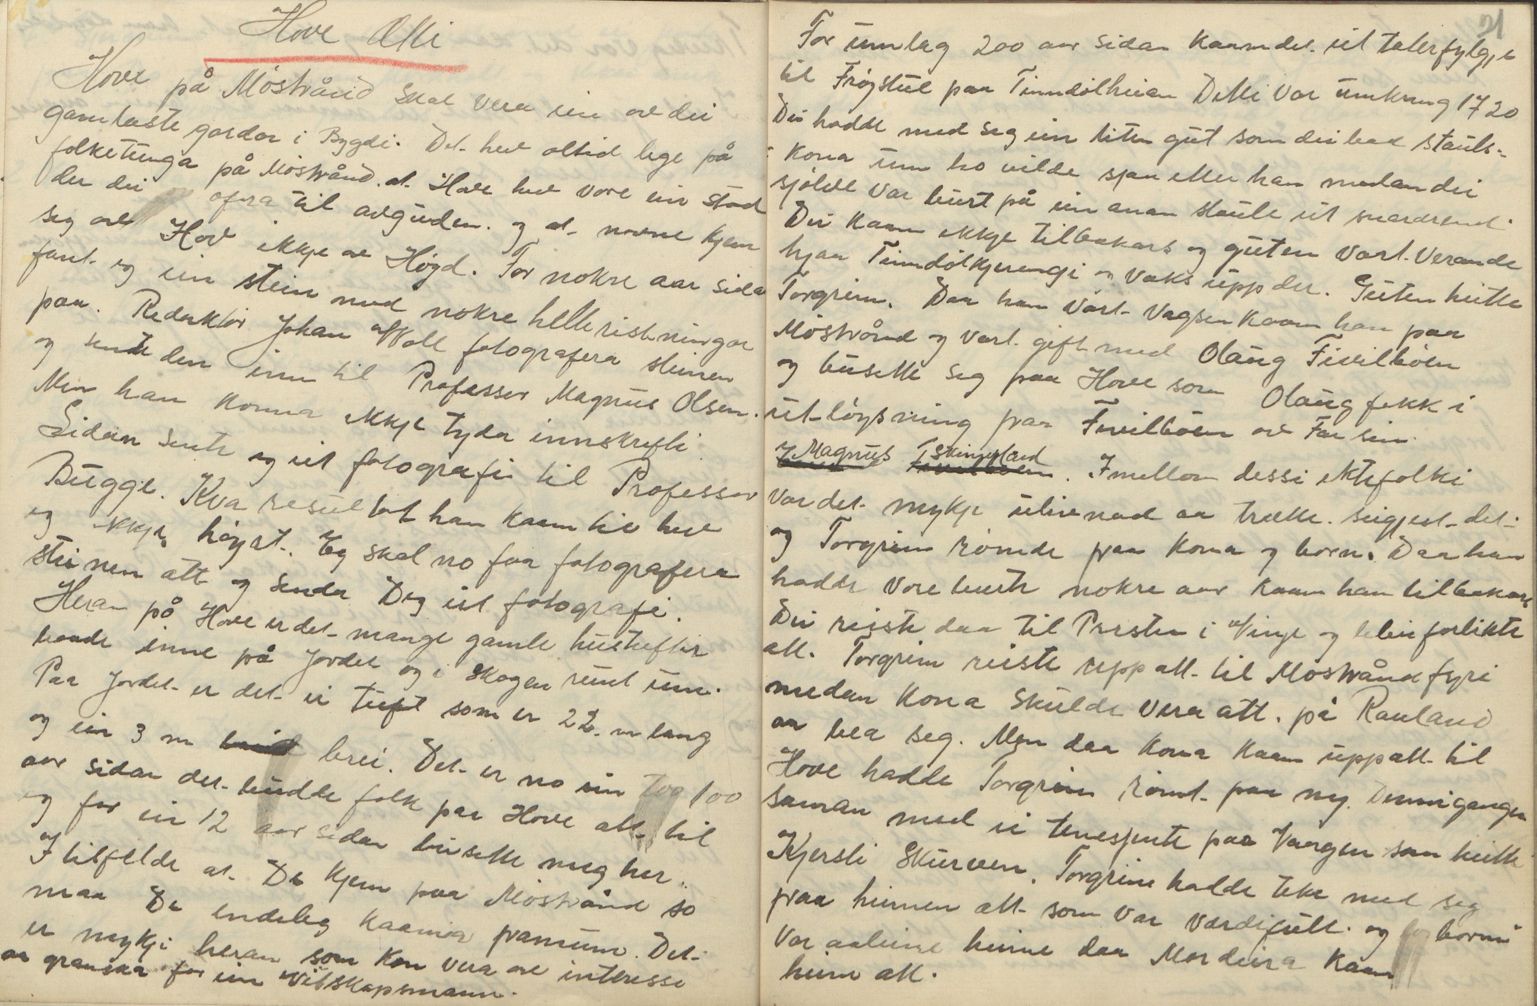 Hove Ætti
Hove på Møstrånd skal vera ein av dei
gamlaste gardar i Bygdi. Det hev altid lege på
folketunga på Møstrånd at Hove hev vore ein stad
der dei ofra til avguden. og at navne kjem
seg av Hov ikkje av Høgd. For nokre aar sida
fant eg ein stein med nokre helleristningar
paa. Redaktør Johan Woll fotografera steinen
og sendt den inn til Professor Magnus Olsen.
Men han konna ikkje tyda innskrifti.
Sidan sente eg eit fotografi til Professor
Bugge. Kva resultat han kaam til hev
eg ikkje høyrt. Eg skal no faa fotografera
steinen att og senda Deg eit fotografi.
Heran på Hove er det mange gamle hustuftir
baade inne på Jordet og i skogen runt um.
Paa Jordet er det ei tuft som er 22 m lang
og ein 3 m brei. Det er no ein 100
aar sidan det budde folk paa Hove att til
eg for ein 12 aar sidan busette meg her.
I tilfelde at De kjem paa Møstrånd so
maa De endeleg kaama framum. Det
er mykji heran som kan vera av interesse
aa granska for ein Vitskapsmann.
21
For umlag 200 aar sidan kaam det eit taterfylgje
til Frøystul paa Tinndølheian Dette var umkring 1720
Dei hadde med seg ein liten gut som dei bad stauls-
kona um ho vilde sjaa etter han medan dei
sjølve var burt på ein anan staule eit snarærend.
Dei kaam ikkje tilbakars og guten vart verande
hjaa Tinndølkjeringi og vaks upp der. Guten heitte
Torgrim. Daa han vart vagsen kaam han paa
Møstrånd og vart gift med Olaug Fivilbøen
og busette seg paa Hove som Olaug fekk i
utløysning fraa Fivilbøen av Far sin
Magnus Skinnyland. Imellom dessi ektefolki
var det mykje ulivnad aa trætte. seigjest det
og Torgrim rømde fraa kona og born. Daa han
hadde vore burte nokre aar kaam han tilbakars
Dei reiste daa til Presten i Vinje og blei forlikte
att. Torgrim reiste upp att til Møstrånd fyri
medan kona skulde vera att. på Rauland
aa bea seg. Men daa kona kaam uppatt til
Hove hadde Torgrim rømt paa ny. Denni gangen
saman med ei tenesjente paa Vaagen som heitte
Kjersti Skurven. Torgrim hadde teke med seg
fraa heimen alt som var værdifullt. og borni
var aaleine heime daa Mor deira kaam
heim att.